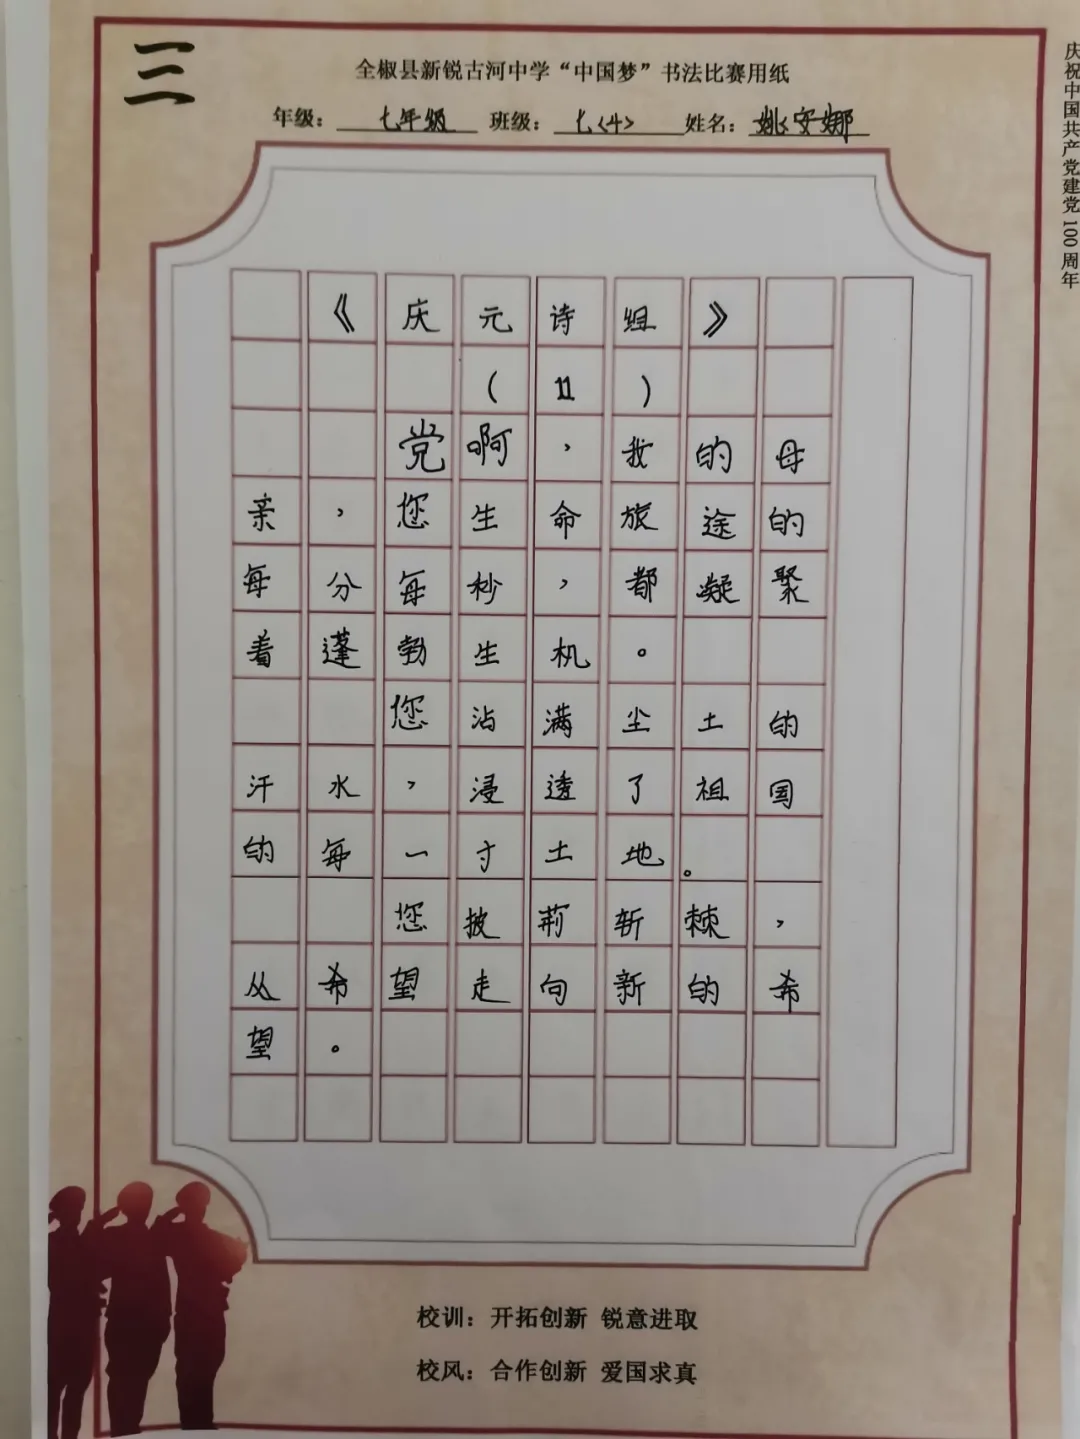 三
全椒县新锐古河中学“中国梦”书法比赛用纸
年级：七年级 班级：七<4> 姓名：姚安娜
庆祝中国共产党建党100周年
《庆元诗组》
(11)
党啊，我的母
亲，您生命旅途的
每分每秒，都凝聚
着蓬勃生机。
您沾满尘土的
汗水，浸透了祖国
的每一寸土地。
您披荆斩棘，
从希望走向新的希
望。
校训：开拓创新 锐意进取
校风：合作创新 爱国求真